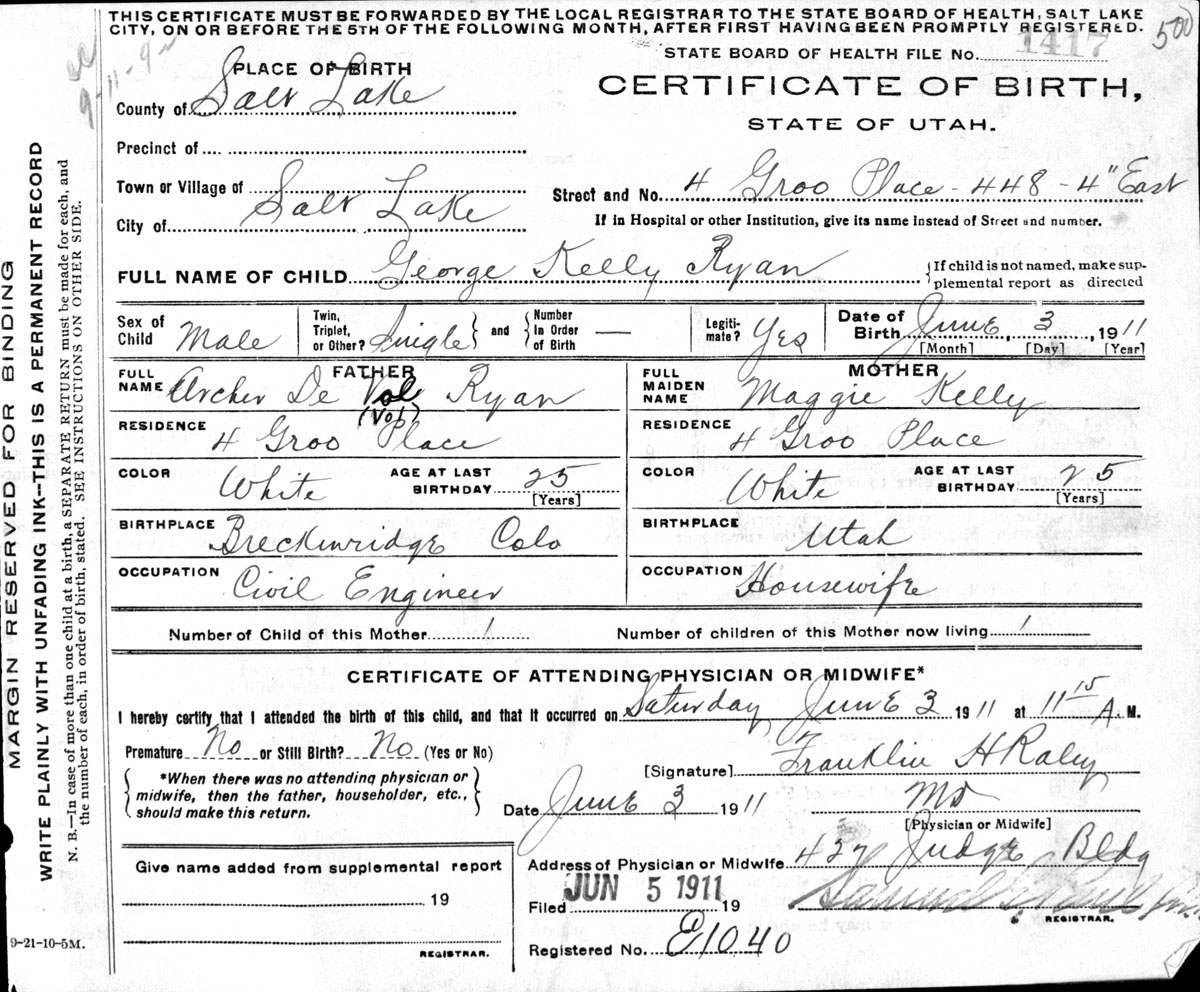 THIS CERTIFICATE MUST BE FORWARDED BY THE LOCAL REGISTRAR TO THE STATE BOARD OF HEALTH, SALT LAKE
CITY, ON OR BEFORE THE 5TH OF THE FOLLOWING MONTH, AFTER FIRST HAVING BEEN PROMPTLY REGISTERED.
500
STATE BOARD OF HEALTH FILE No. 1417
PLACE OF BIRTH
CERTIFICATE OF BIRTH,
County of Salt Lake
STATE OF UTAH.
Precinct of
Town or Village of
Street and No. 4 Groo Place - 448 - 4" East
City of Salt Lake
If in Hospital or other Institution, give its name instead of Street and number.
FULL NAME OF CHILD George Kelly Ryan
{If child is not named, make sup-
plemental report as directed
Sex of Child Male
Twin, Triplet, or Other? Single } and { Number In Order of Birth —
Legiti-mate? Yes
Date of Birth June 3, 1911
[Month] [Day] [Year]
FATHER
FULL NAME Archer De Vol Ryan
(Vol)
RESIDENCE 4 Groo Place
COLOR White AGE AT LAST BIRTHDAY 25
[Years]
BIRTHPLACE Breckinridge Colo
OCCUPATION Civil Engineer
MOTHER
FULL MAIDEN NAME Maggie Kelly
RESIDENCE 4 Groo Place
COLOR White AGE AT LAST BIRTHDAY 25
[Years]
BIRTHPLACE Utah
OCCUPATION Housewife
Number of Child of this Mother 1 Number of children of this Mother now living 1
CERTIFICATE OF ATTENDING PHYSICIAN OR MIDWIFE*
I hereby certify that I attended the birth of this child, and that it occurred on Saturday June 3 1911 at 11 15 A. M.
Premature No or Still Birth? No (Yes or No)
{ *When there was no attending physician or
midwife, then the father, householder, etc.,
should make this return. }
[Signature] Franklin H Raley
Date June 3 1911 MD
[Physician or Midwife]
Address of Physician or Midwife 427 Judge Bldg
Give name added from supplemental report
19
REGISTRAR.
Filed JUN 5 1911 19
REGISTRAR.
Registered No. E1040
9-21-10-5M.
MARGIN RESERVED FOR BINDING
WRITE PLAINLY WITH UNFADING INK--THIS IS A PERMANENT RECORD
N. B.—In case of more than one child at a birth, a SEPARATE RETURN must be made for each, and
the number of each, in order of birth, stated. SEE INSTRUCTIONS ON OTHER SIDE.